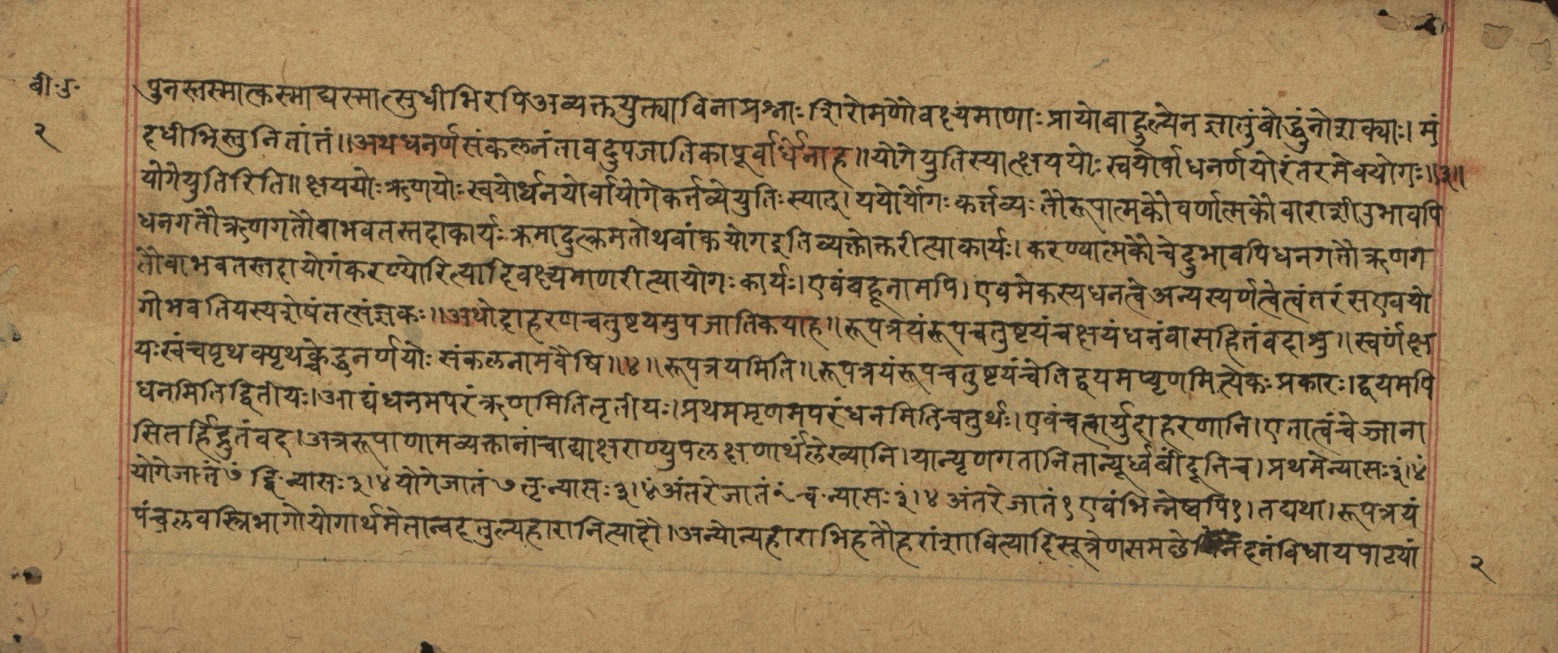 बी॰ऽ॰
२
पुनस्तस्मात्कस्माद्यस्मात्सुधीभिरपिअव्यक्तयुक्त्याविनाप्रश्नाःशिरोमणौवक्ष्यमाणाःप्रायोबाहुल्येनज्ञातुंबोद्धुंनोशक्याः।मं
दधीभिस्तुनितांतं॥अथधनर्णसंकलनंतावदुपजातिकापूर्वार्धेनाह॥योगेयुतिस्यात्क्षययोःस्वयोर्वाधनर्णयोरंतरमेवयोगः॥३॥
योगेयुतिरिति॥क्षययोःऋणयोःस्वयोर्धनयोर्वायोगेकर्त्तव्येयुतिःस्यात्।ययोर्योगःकर्त्तव्यःतौरूपात्मकौवर्णात्मकौवाराशीउभावपि
धनगतौऋणगतौवाभवतस्तदाकार्यःक्रमादुत्क्रमतोथवांकयोगइतिव्यक्तोक्तरीत्याकार्यः।करण्यात्मकौचेदुभावपिधनगतौऋणग
तौवाभवतस्तदायोगंकरण्योरित्यादिवक्ष्यमाणरीत्यायोगःकार्यः।एवंबहूनामपि।एवमेकस्यधनत्वेअन्यस्यर्णत्वेत्वंतरंसएवयो
गोभवतियस्यशेषंतत्संज्ञकः॥अथोदाहरणचतुष्टयमुपजातिकयाह॥रूपत्रयंरूपचतुष्टयंचक्षयंधनंवासहितंवदाशु॥स्वर्णंक्ष
यःस्वंचपृथक्पृथक्चेद्धनर्णयोःसंकलनामवैषि॥४॥रूपत्रयमिति॥रूपत्रयंरूपचतुष्टयंचेतिद्वयमप्यृणमित्येकःप्रकारः।द्वयमपि
धनमितिद्वितीयः।आद्यंधनमपरंऋणमितितृतीयः।प्रथममृणमपरंधनमितिचतुर्थः।एवंचत्वार्युदाहरणानि।एतात्वंचेज्जाना
सितर्हिद्रुतंवद।अत्ररूपाणामव्यक्तानांचाद्याक्षराण्युपलक्षणार्थंलेख्यानि।यान्यृणगतानितान्यूर्ध्वबींदूनिच।प्रथमेन्यासःं३।ं४
योगेजातंं७द्वि॰न्यासः३।४योगेजातं७तृ॰न्यासः३।ं४अंतरेजातंं१च॰न्यासःं३।४अंतरेजातं१एवंभिन्नेष्वपि१।तद्यथा।रूपत्रयं
पंचलवस्त्रिभागोयोगार्थमेतान्वदतुल्यहारानित्यादौ।अन्योन्यहाराभिहतौहरांशावित्यादिसूत्रेणसमछेदनंविधायपाट्यां
२